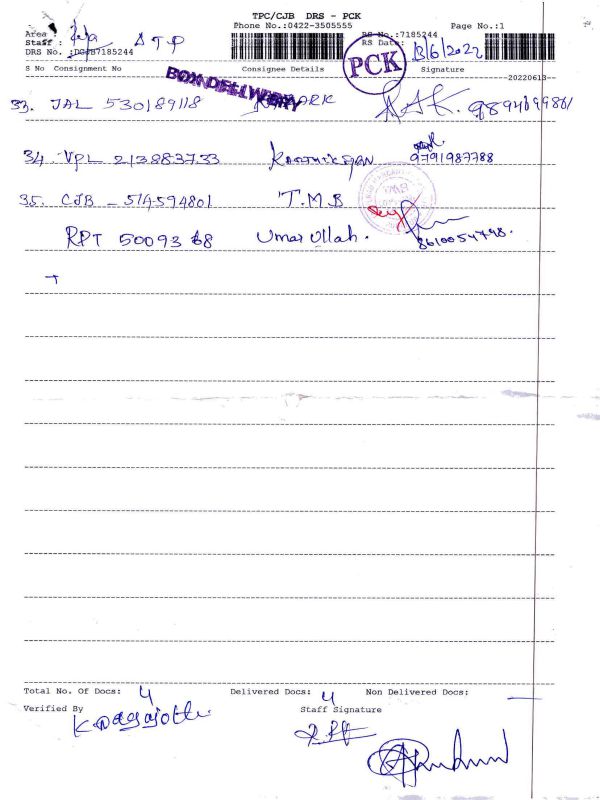 TPC/CJB DRS - PCK
Phone No.:0422-3505555 Page No.:1
Area : RS No.:7185244
Staff : RS Date: 13/6/2022
DRS No. :DGJB7185244 PCK
S No Consignment No Consignee Details Signature
--20220613--
BOX DELIVERY
33. JAL 530189118
34. VPL 213883733 9791987788
35. CJB - 514594801 T.M.B
RPT 5009368 Umar Ullah. 8610054798.
Total No. Of Docs: 4 Delivered Docs: 4 Non Delivered Docs: —
Verified By Staff Signature